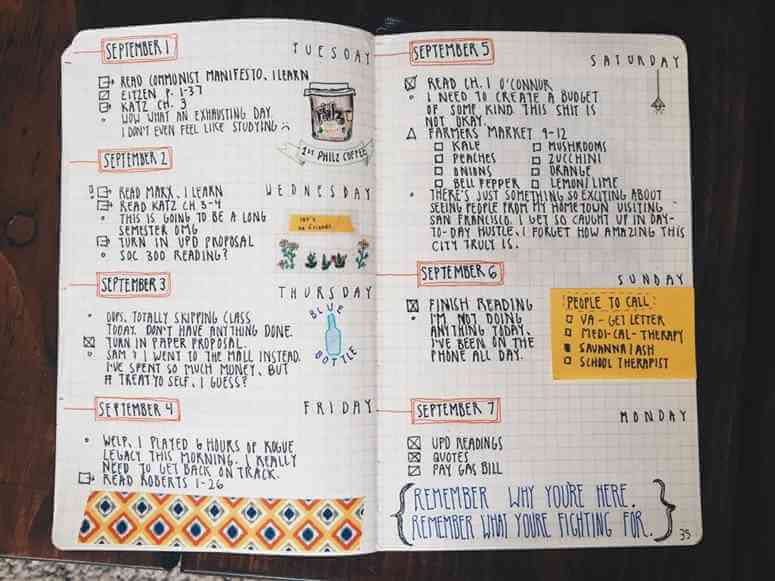 SEPTEMBER 1
TUESDAY
READ COMMUNIST MANIFESTO, ILEARN
EITZEN P. 1-37
KATZ CH. 3
WOW WHAT AN EXHAUSTING DAY.
I DON'T EVEN FEEL LIKE STUDYING :(
PHILZ
1ST PHILZ COFFEE
SEPTEMBER 2
WEDNESDAY
! READ MARX, ILEARN
READ KATZ CH 3-4
THIS IS GOING TO BE A LONG
SEMESTER OMG
TURN IN UPD PROPOSAL
SOC 300 READING?
let's
be friends
SEPTEMBER 3
THURSDAY
OOPS. TOTALLY SKIPPING CLASS
TODAY. DON'T HAVE ANYTHING DONE.
TURN IN PAPER PROPOSAL.
SAM & I WENT TO THE MALL INSTEAD.
I'VE SPENT SO MUCH MONEY, BUT
# TREAT YO SELF, I GUESS?
BLUE
BOTTLE
SEPTEMBER 4
FRIDAY
WELP, I PLAYED 6 HOURS OF ROGUE
LEGACY THIS MORNING. I REALLY
NEED TO GET BACK ON TRACK.
READ ROBERTS 1-26
SEPTEMBER 5
SATURDAY
READ CH. 1 O'CONNOR
I NEED TO CREATE A BUDGET
OF SOME KIND. THIS SHIT IS
NOT OKAY.
FARMERS MARKET 9-12
KALE MUSHROOMS
PEACHES ZUCCHINI
ONIONS ORANGE
BELL PEPPER LEMON/LIME
THERE'S JUST SOMETHING SO EXCITING ABOUT
SEEING PEOPLE FROM MY HOMETOWN VISITING
SAN FRANCISCO. I GET SO CAUGHT UP IN DAY-
TO-DAY HUSTLE, I FORGET HOW AMAZING THIS
CITY TRULY IS.
SEPTEMBER 6
SUNDAY
FINISH READING
I'M NOT DOING
ANYTHING TODAY.
I'VE BEEN ON THE
PHONE ALL DAY.
PEOPLE TO CALL:
VA - GET LETTER
MEDI-CAL - THERAPY
SAVANNA/ASH
SCHOOL THERAPIST
SEPTEMBER 7
MONDAY
UPD READINGS
QUOTES
PAY GAS BILL
REMEMBER WHY YOU'RE HERE.
REMEMBER WHAT YOU'RE FIGHTING FOR.
35